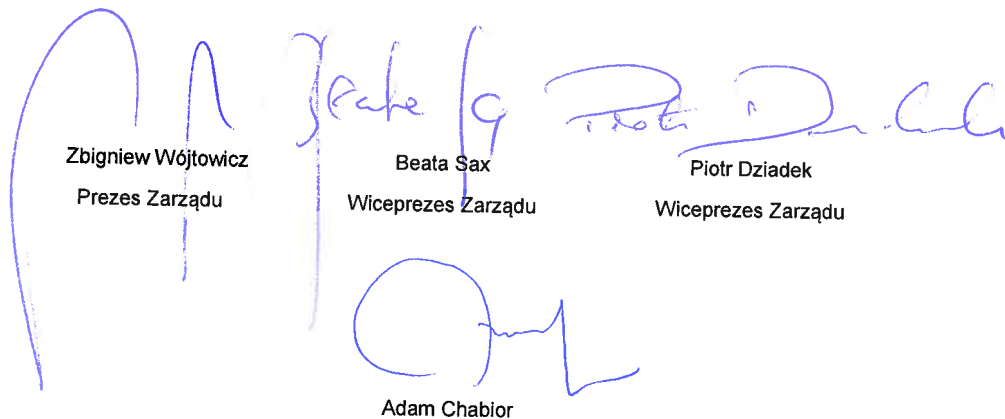 Zbigniew Wójtowicz
Prezes Zarządu
Beata Sax
Wiceprezes Zarządu
Piotr Dziadek
Wiceprezes Zarządu
Adam Chabior